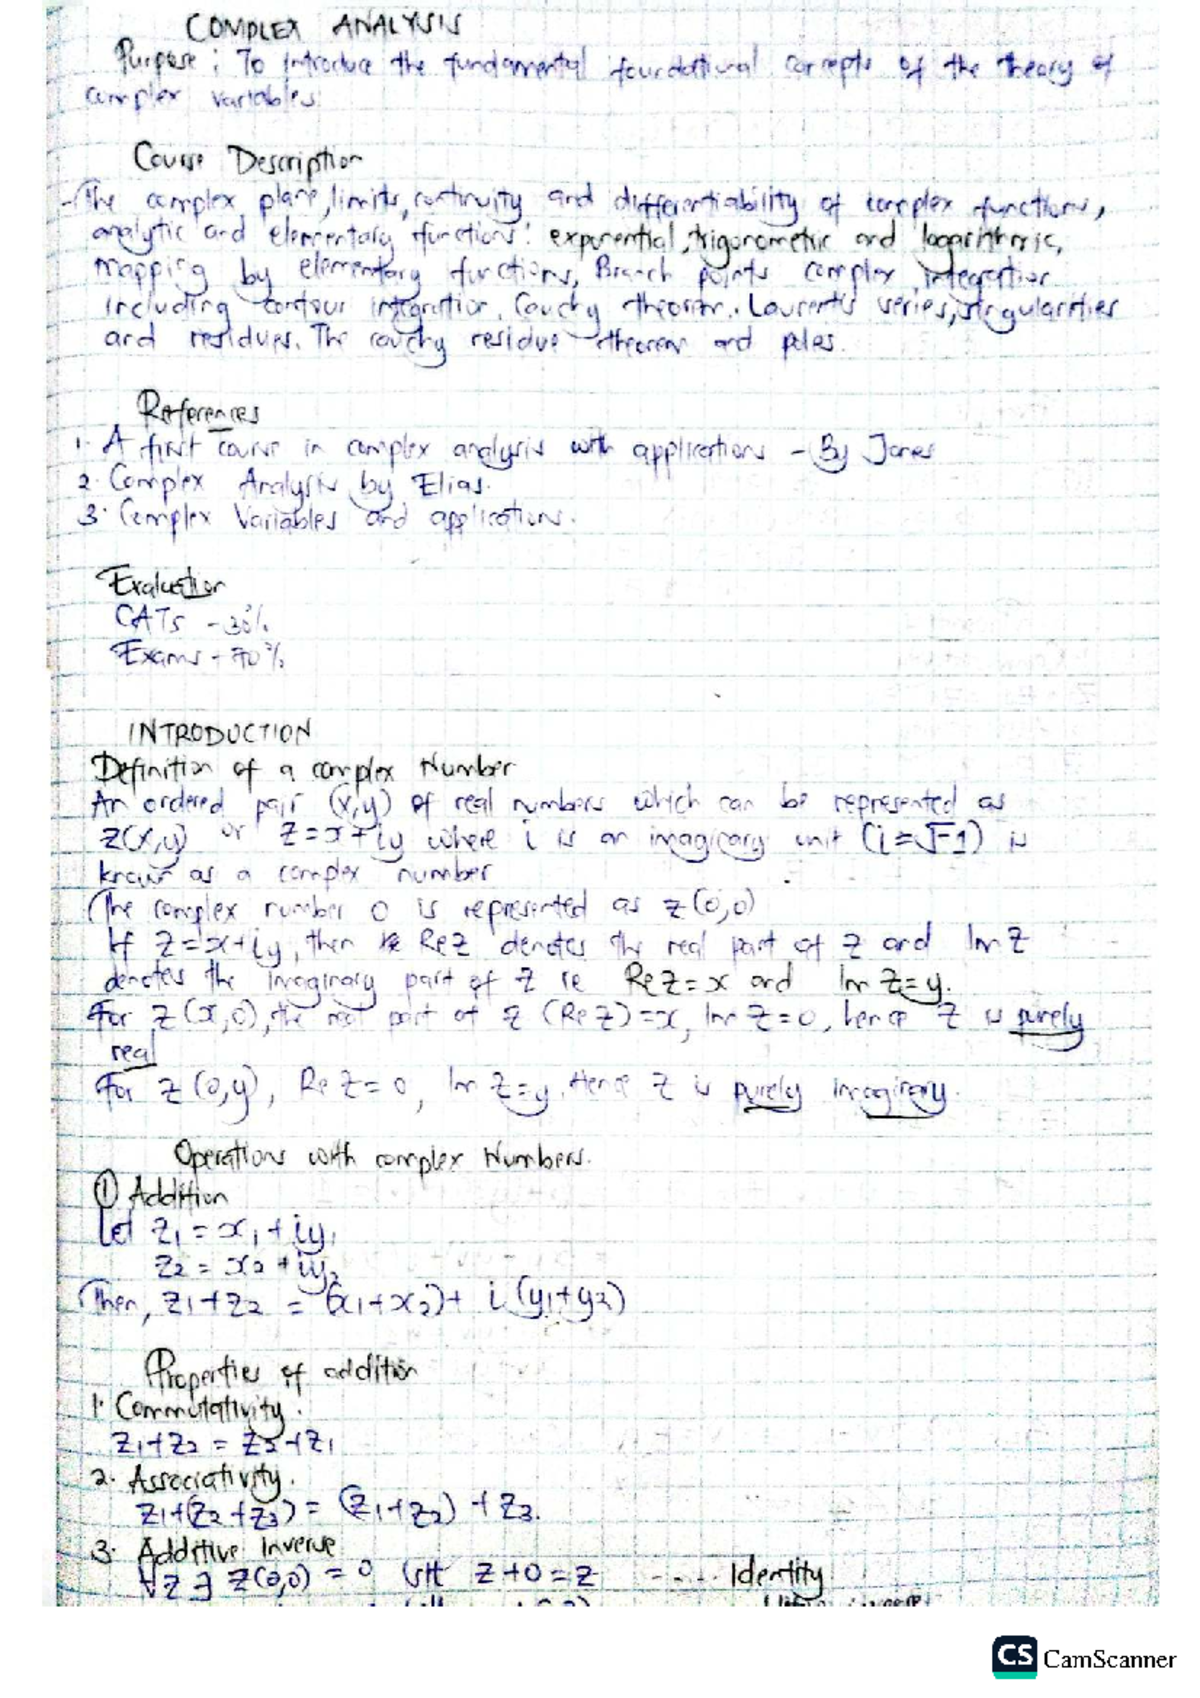 COMPLEX ANALYSIS
Purpose : To introduce the fundamental foundational concepts of the theory of
complex variables
Course Description
-The complex plane, limits, continuity and differentiability of complex functions,
analytic and elementary functions: exponential, trigonometric and logarithmic,
mapping by elementary functions, Branch points complex integration
including contour integration, Cauchy theorem. Laurent's series, singularities
and residues. The cauchy residue theorem and poles.
References
1. A first course in complex analysis with applications - By James
2. Complex Analysis by Elias.
3. Complex Variables and applications.
Evaluation
CATs - 30%
Exams - 70%
INTRODUCTION
Definition of a complex Number
An ordered pair (x,y) of real numbers which can be represented as
z(x,y) or z=x+iy where i is an imaginary unit (i=√-1) is
known as a complex number
The complex number 0 is represented as z(0,0)
If z=x+iy, then Re z denotes the real part of z and Im z
denotes the imaginary part of z ie Re z=x and Im z=y.
For z(x,0), the real part of z (Re z)=x, Im z=0, hence z is purely
real
For z(0,y), Re z=0, Im z=y. Hence z is purely imaginary.
Operations with complex Numbers.
① Addition
Let z₁ = x₁+iy₁
z₂ = x₂+iy₂
Then, z₁+z₂ = (x₁+x₂)+ i(y₁+y₂)
Properties of addition
1. Commutativity.
z₁+z₂ = z₂+z₁
2. Associativity.
z₁+(z₂+z₃) = (z₁+z₂)+z₃.
3. Additive Inverse
∀z ∃ z(0,0) = 0 s.t z+0=z ---- Identity
CS CamScanner